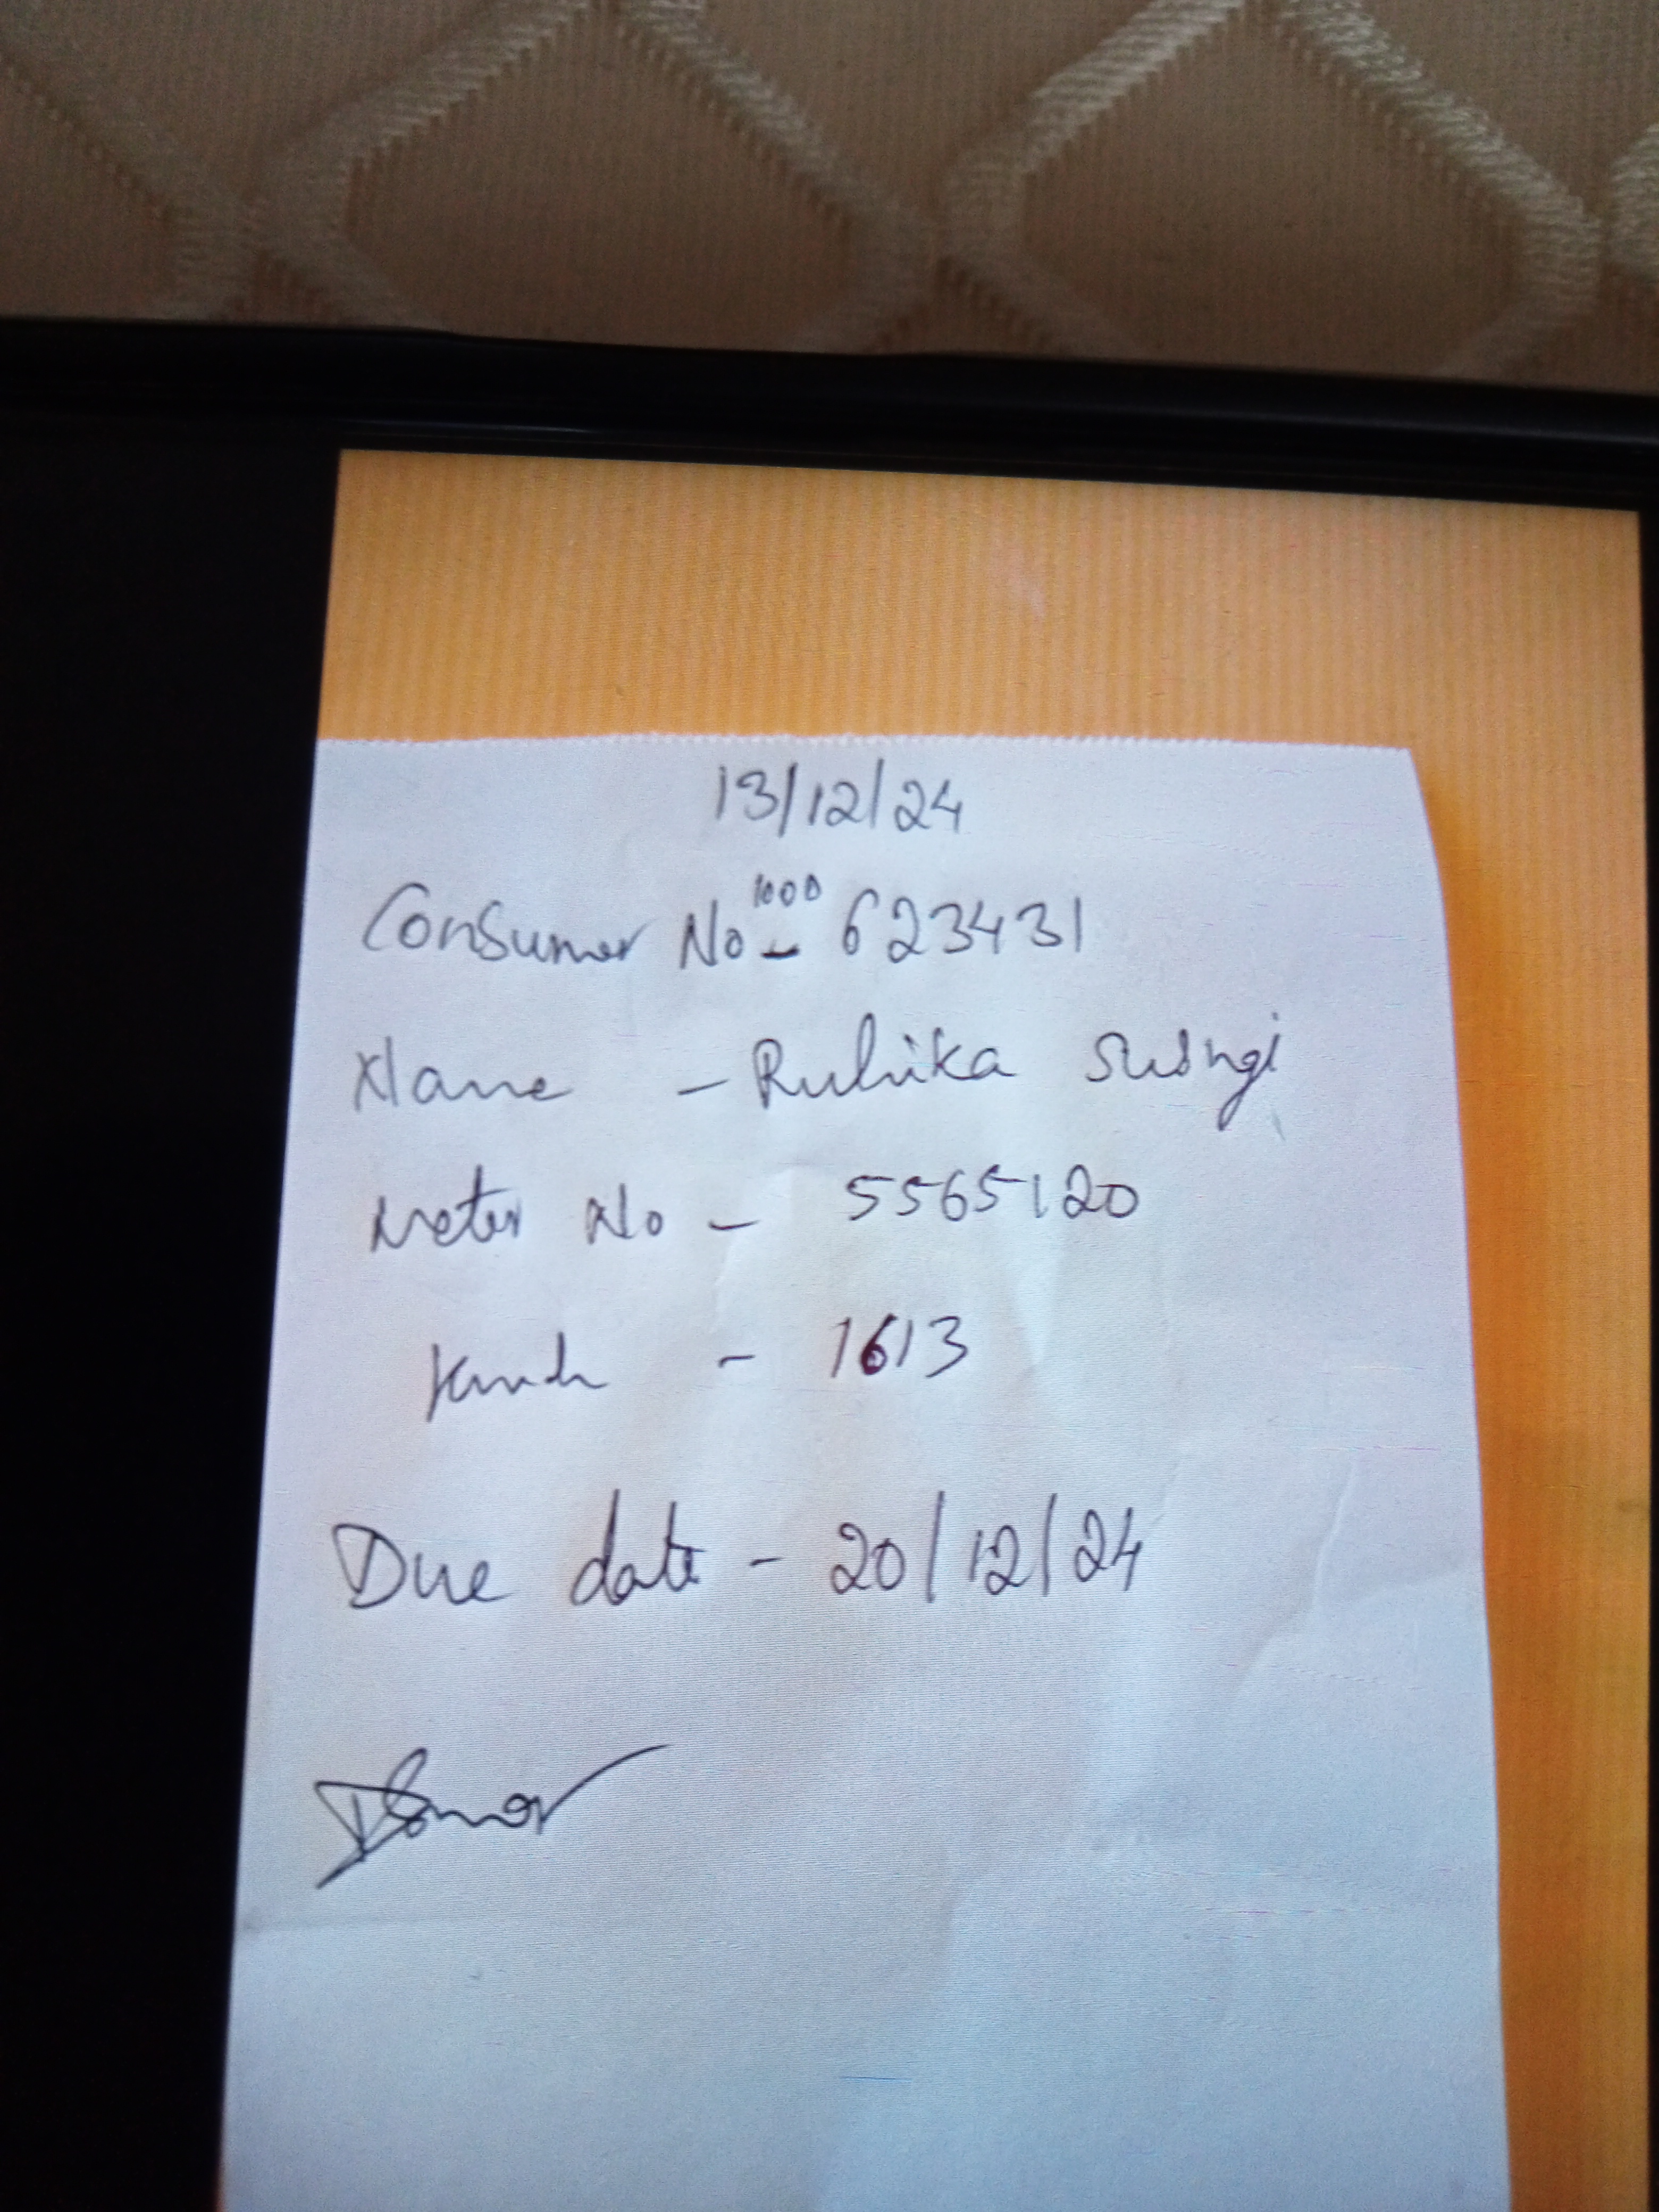 13/12/24
Consumer No - 1000 623431
Name - Ruhika
Meter No - 5565120
Kwh - 1613
Due date - 20/12/24